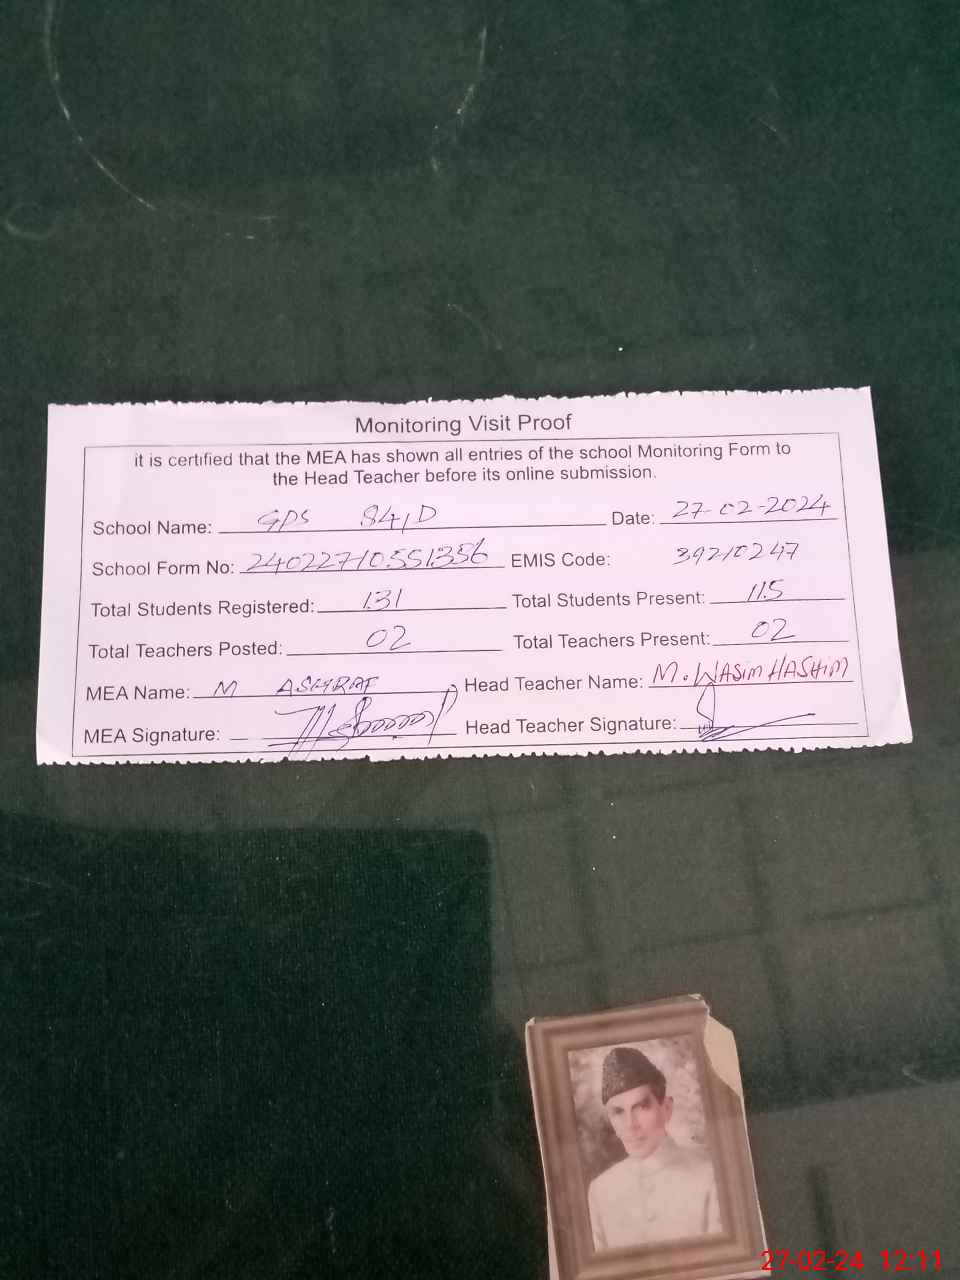 Monitoring Visit Proof
it is certified that the MEA has shown all entries of the school Monitoring Form to
the Head Teacher before its online submission.
School Name: GPS 84/D Date: 27-02-2024
School Form No: 24022710551356 EMIS Code: 39210247
Total Students Registered: 131 Total Students Present: 115
Total Teachers Posted: 02 Total Teachers Present: 02
MEA Name: M ASHRAF Head Teacher Name: M. WASIM HASHIM
MEA Signature: Head Teacher Signature:
27-02-24 12:11